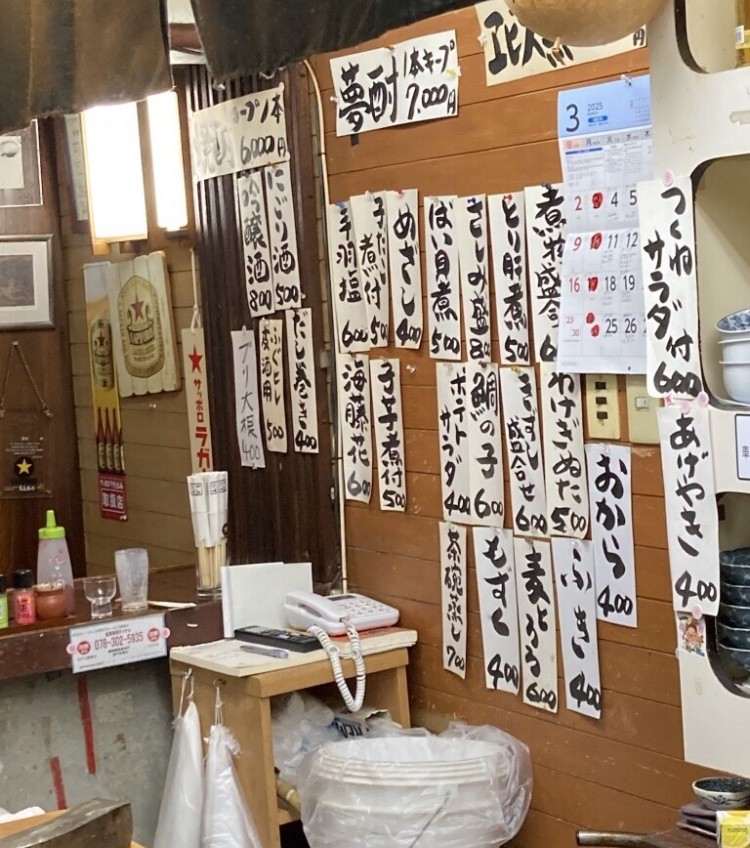 夢酎 1本キープ
7.000円
キープ1本
6000円
にごり酒 500
吟醸酒 800
だし巻き 400
ふぐヒレ
酒用 500
ブリ大根 400
めざし 400
子だい
煮付 500
手羽塩 600
子芋煮付 500
海藤花 600
煮物盛合
とり肝煮 500
さしみ盛
ばい貝煮 500
わけぎぬた 500
盛合せ 600
鯛の子 600
ポテト
サラダ 400
おから 400
ふき 400
麦とろ 600
もずく 400
茶碗蒸し 700
つくね
サラダ付
600
あげやき 400
3 2025
2 4 5
9 11 12
16 18 19
23 30 25 26
★サッポロラガ
取扱店
076-302-5935